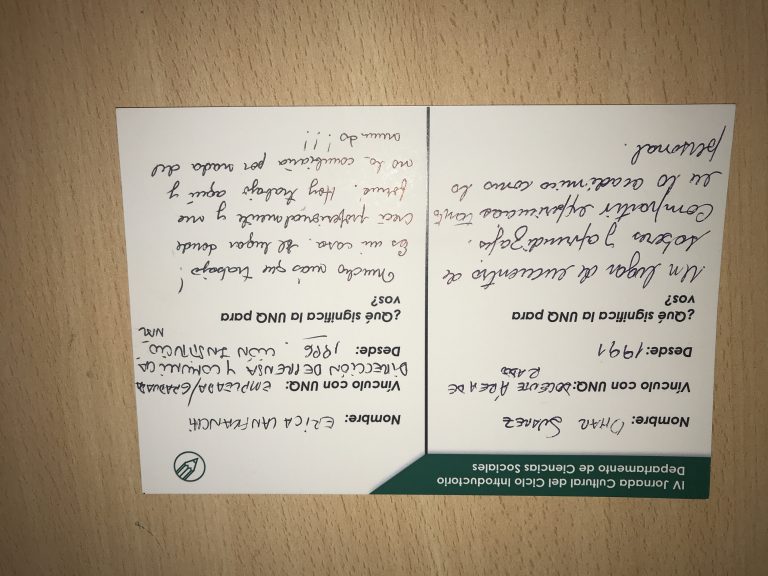 IV Jornada Cultural del Ciclo Introductorio
Departamento de Ciencias Sociales
Nombre: OMAR SUAREZ
Vínculo con UNQ: DOCENTE ÁREA DE
RADIO
Desde: 1991
¿Qué significa la UNQ para
vos?
Un lugar de encuentro de
saberes y aprendizaje.
Compartir experiencias tanto
en lo académico como lo
personal.
Nombre: ERICA LANFRANCHI
Vínculo con UNQ: EMPLEADA/GRADUADA
DIRECCIÓN DE PRENSA Y COMUNICA
Desde: 1996. CIÓN INSTITUCIO
NAL
¿Qué significa la UNQ para
vos?
Mucho más que trabajo!
Es mi casa. El lugar donde
crecí profesionalmente y me
formé. Hoy trabajo aquí y
no lo cambiaría por nada del
mundo!!!